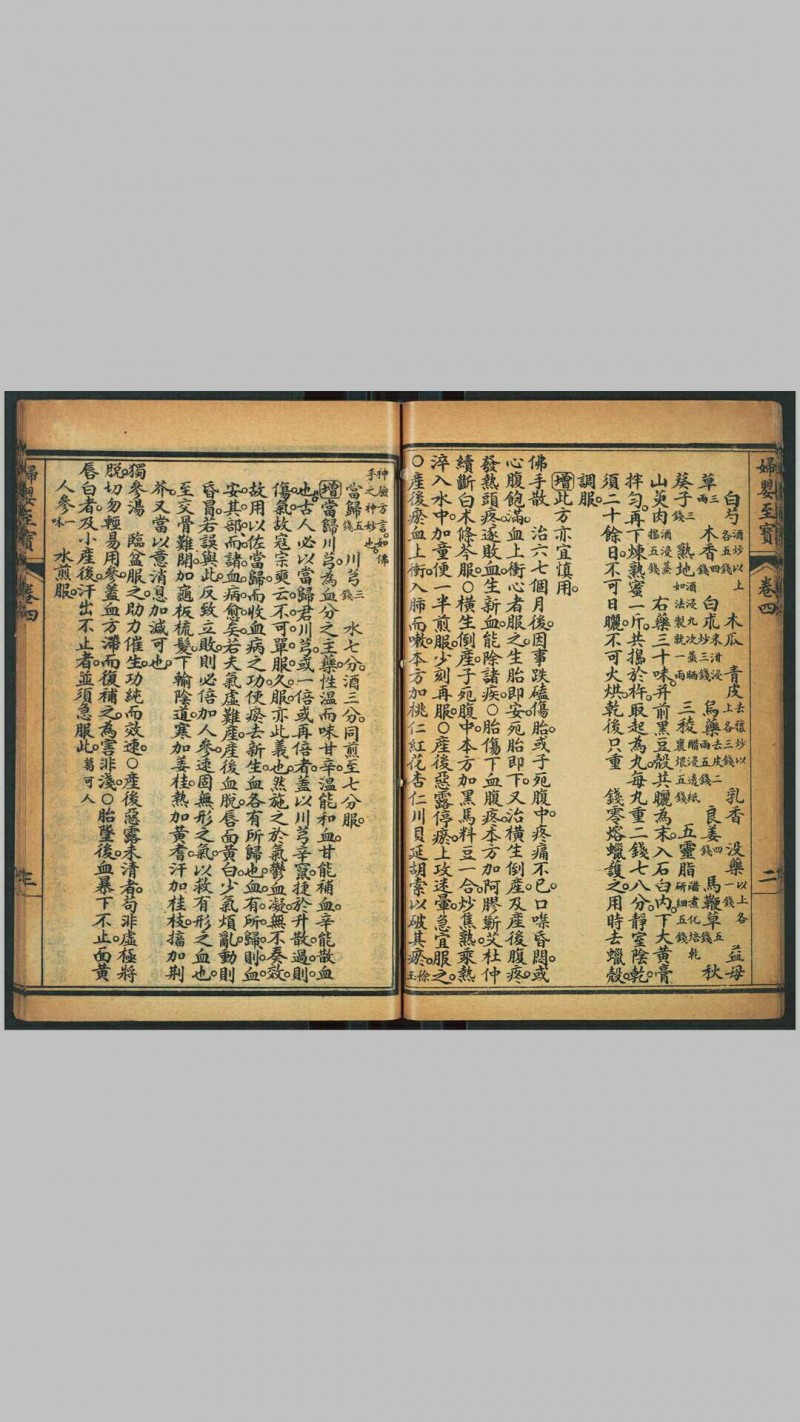 婦嬰至寶 卷四 二
白芍酒炒以上各五錢 木瓜 青皮去穰炒以上各三錢 乳香 沒藥以上各一錢 益母
草三兩 木香四錢 白朮米泔浸炒三錢 烏藥去皮二兩五錢 良姜四錢 馬鞭草五錢 秋
葵子三錢 熟地酒浸九次蒸晒如法製就一兩 三稜醋浸透紙裹煨五錢 五靈脂研細五錢
山萸肉酒浸蒸搗五錢 右藥三十味并前黑豆殼共曬為末入石臼內下大黃膏
拌勻再下煉熟蜜一斤共搗於杵取起為丸每丸重二錢七八分靜室陰乾
須二十餘日不可日曬不可火烘乾後只重 錢零熔蠟護之用時去蠟殼
調服
增此方亦宜慎用
佛手散 治六七個月後因事跌磕傷胎或子宛腹中疼痛不已口噤昏悶或
心腹飽滿血上衝心者服之生胎即安宛胎即下又治橫生倒産及産後腹疼
發熱頭疼逐敗血生新血能除諸疾○胎傷下血腹疼本方加阿膠蘄艾杜仲
續斷白朮條岑服○橫生倒産子宛腹中本方加黑馬料豆一合炒焦熟乘熱
淬入水中加童便一半煎服少刻再服○産後惡露停瘀上攻迷暈急宜服之
○産後瘀血上衝入肺而嗽本方加桃仁紅花杏仁川貝延胡索以破其瘀徐玉
神驗方言如佛手之神妙也
當歸五錢 川芎三錢 水七分酒三分同煎至七分服
增當歸川芎為血分之主藥性温而味甘辛温能和血甘能補血辛能散血
也古人必以當歸君川芎或一倍或再倍者蓋以川芎辛竄捷於升散過則
傷氣故寇宗奭云不可單服久服亦此義也然施之於氣鬱血凝無不奏效
故用以佐當歸而收血病之功使瘀去新生血各有所歸也血有所歸則血
安其部而諸血病愈矣若夫氣虛難産産後血脫唇面黃白少氣煩亂動則
昏冒若誤與此反致立敗則必倍加人參速固無形之氣以救有形之血也
至交骨難開加龜板梳髮下輸陰道寒加姜桂熱加黃耆汗加桂枝搐加荆
芥又當以意消息加減可也
獨參湯 臨盆服之助力催生功純而效速○産後惡露未清者苟非虛極將
脫切勿輕易用參蓋血方滯而復補之為害非淺○胎墮後血暴下不止面黃
唇白者及小産後汗出不止者並須急服此葛可人
人參一味 水煎服
婦嬰至寶 卷四